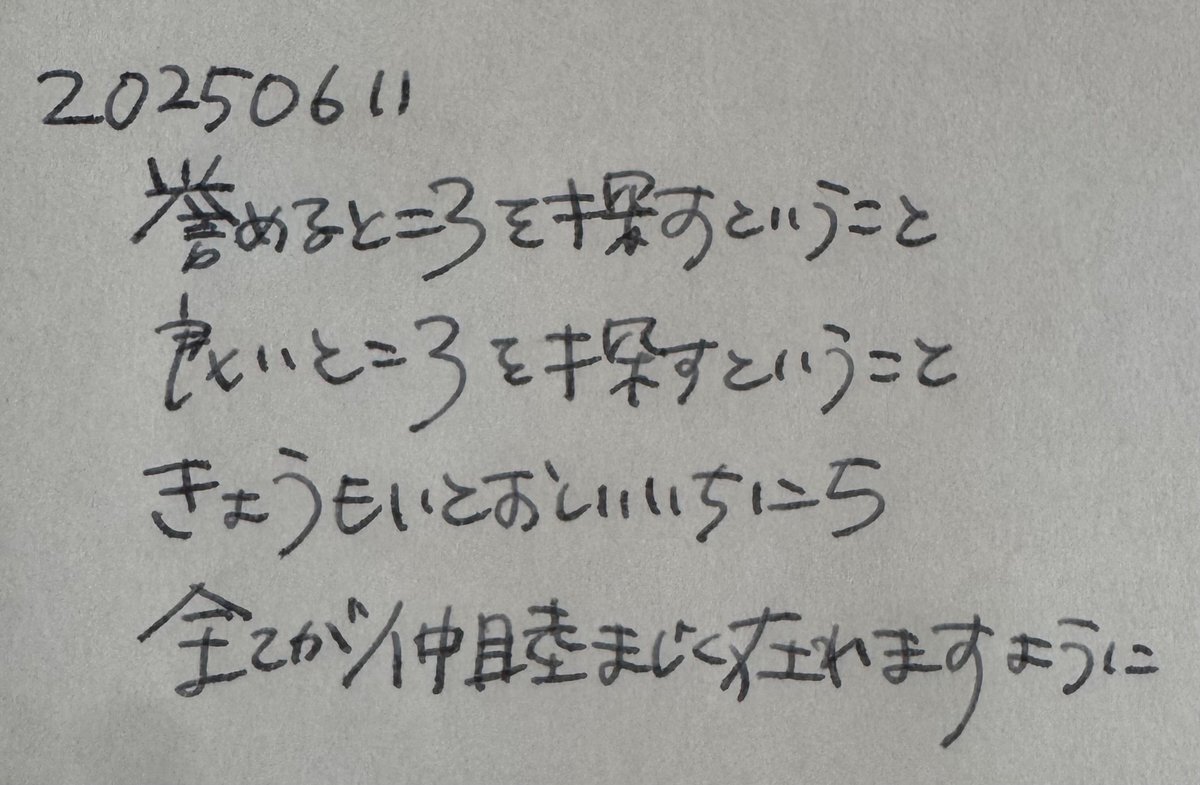 20250611
誉めるところを探すということ
良いところを探すということ
きょうもいとおしいいちにち
全てが仲睦まじく在れますように